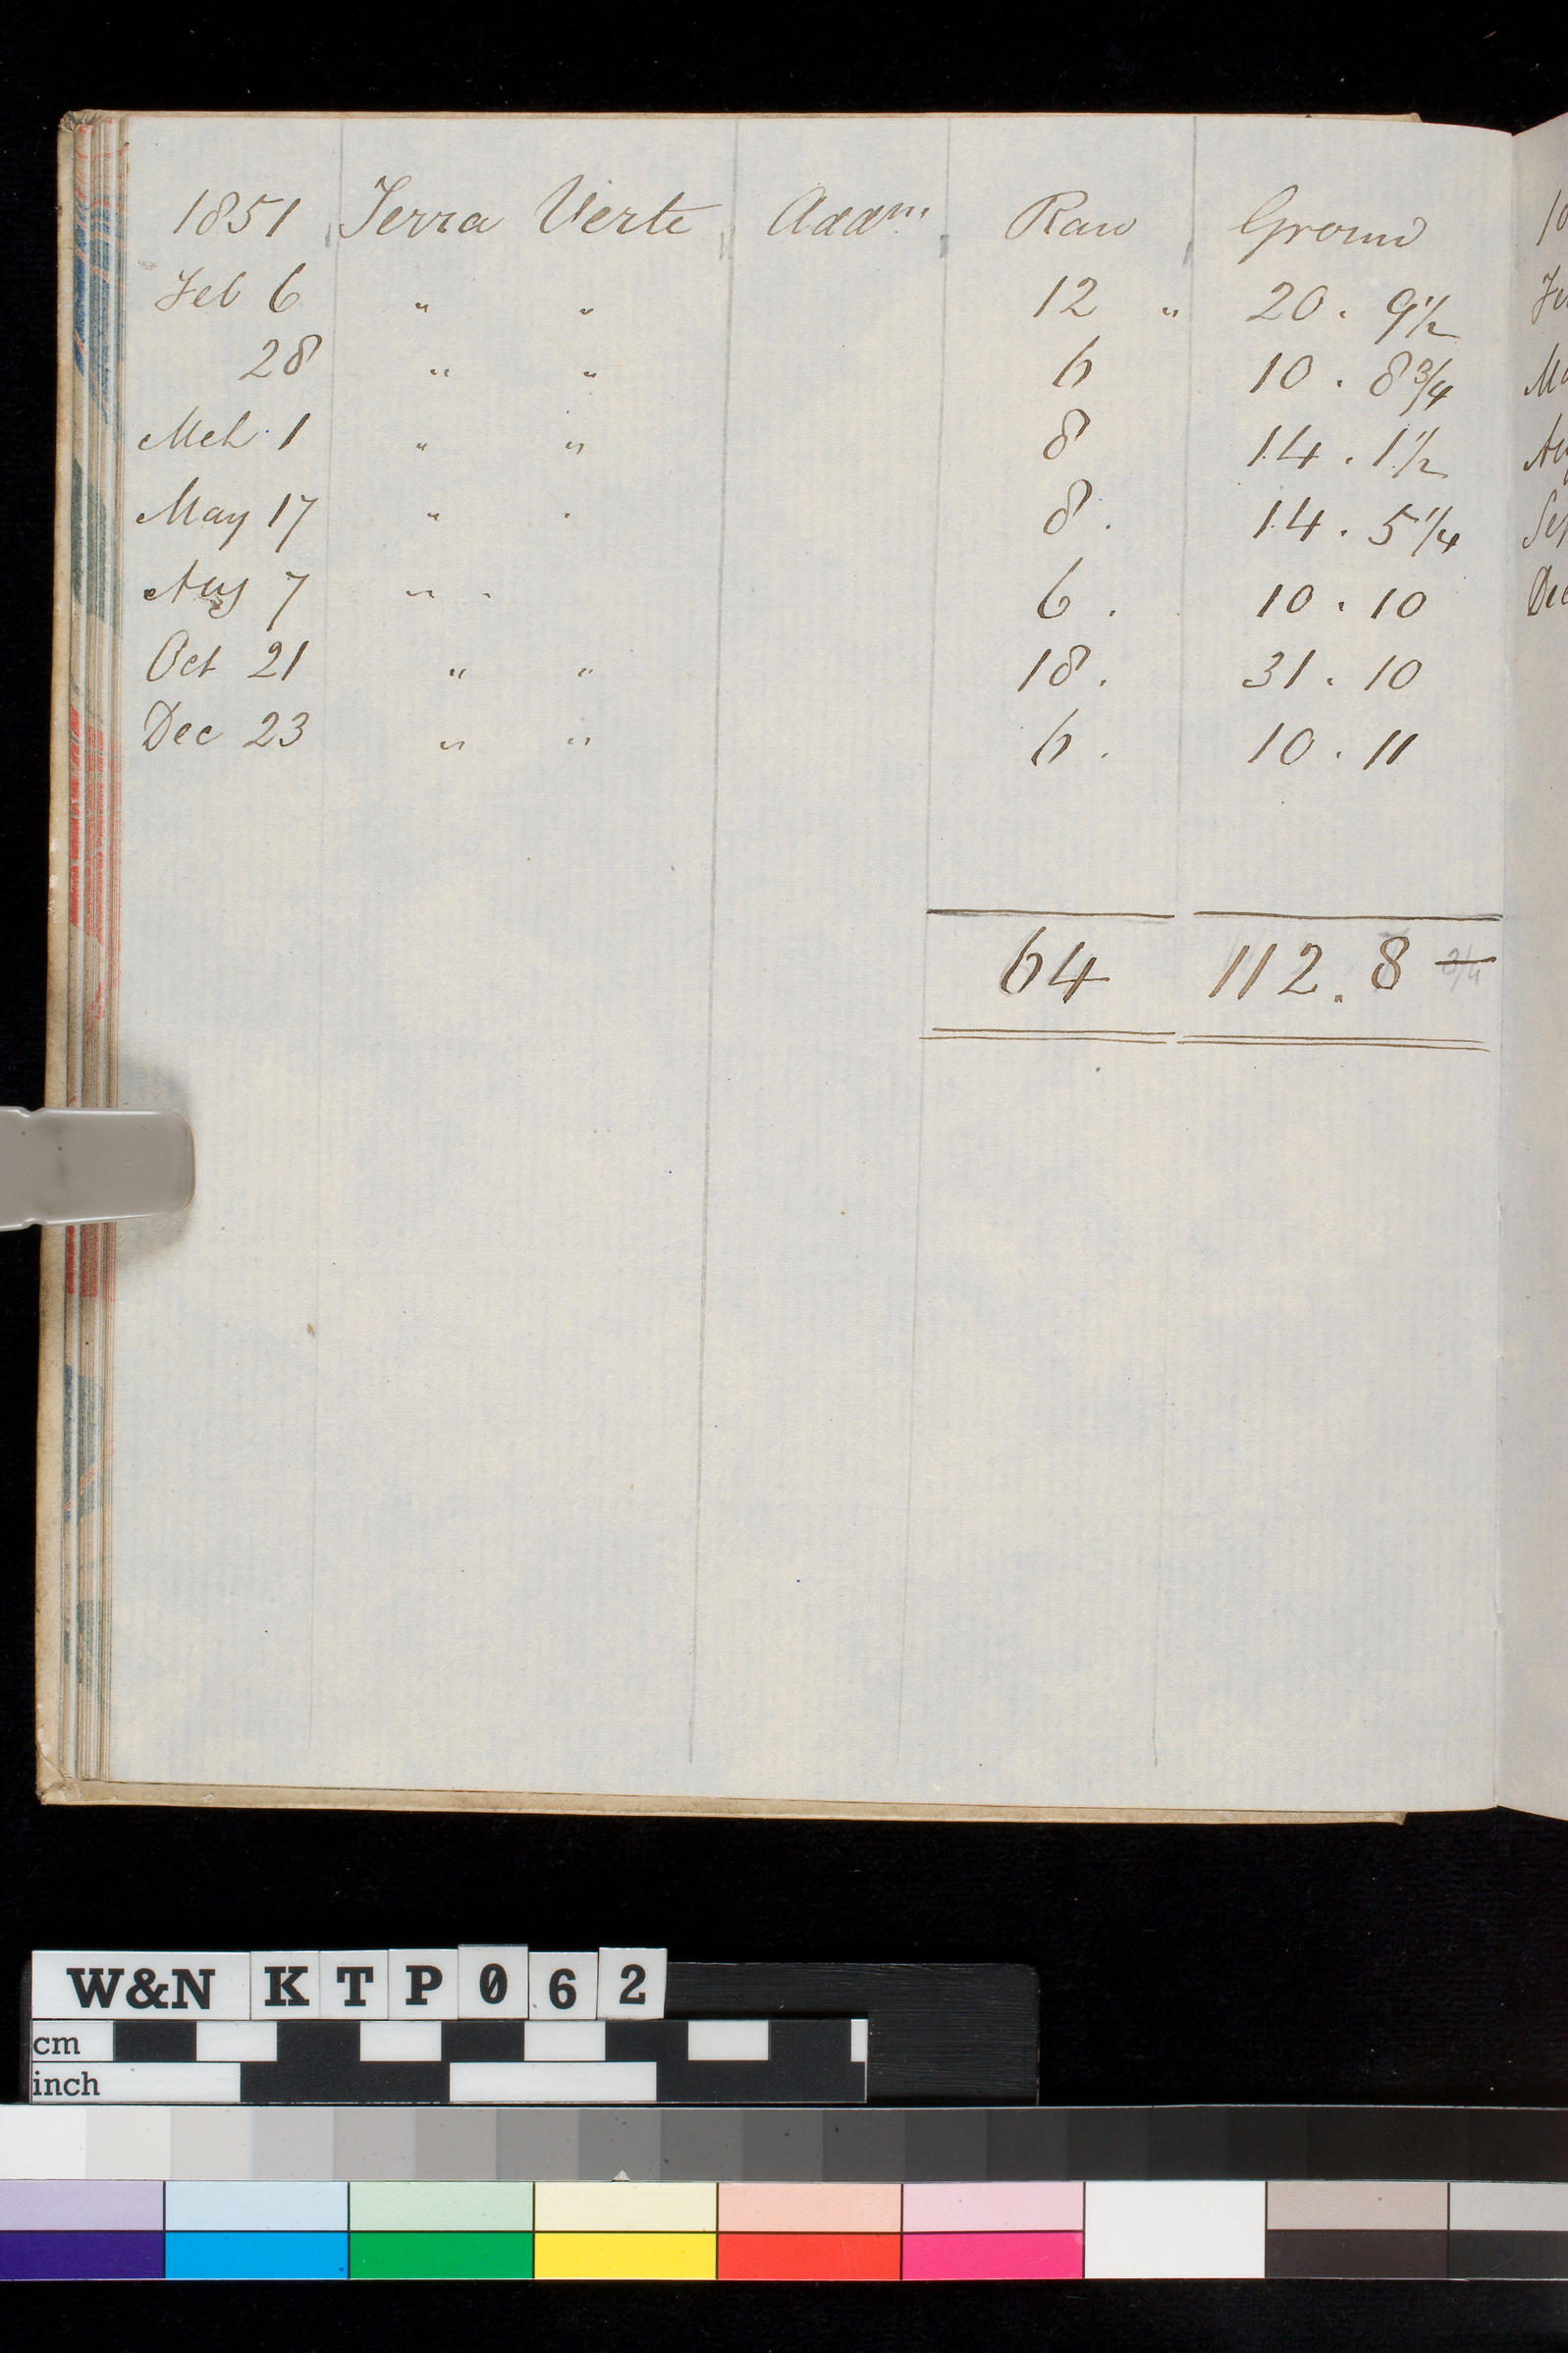 1851 Terra Verte Addns Raw Ground
Feb 6 " " 12 " 20 . 9 1/2
28 " " 6 10 . 8 3/4
Mch 1 " " 8 14 . 1 1/2
May 17 " " 8 . 14 . 5 1/4
Aug 7 " " 6 . 10 . 10
Oct 21 " " 18 . 31 . 10
Dec 23 " " 6 . 10 . 11
64 112 . 8 3/4
W&N KTP062
cm
inch